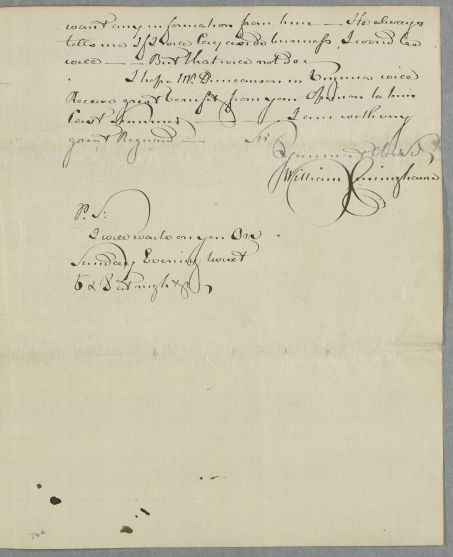 want any information from him — He always
tells me If I will lay aside business, I would be
well — But that will not do.
I hope Mr. Dunceanson in Virginia will
Receive great benefit from your Opinion to him
Last Summer — I am with very
great Reguard — Sir
Your most Obedt
William Cuninghame
P. S:
I will waite on you On
Sunday Evening twixt
6 & 8 at night
760